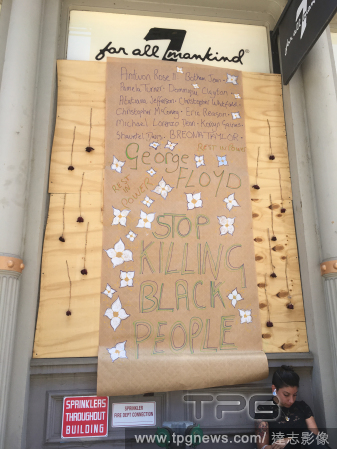 for all 7 mankind®
7
Antwon Rose II - Botham Jean -
Pamela Turner - Dominique Clayton
Atatiana Jefferson - Christopher Whitfield
Christopher McCorvey - Eric Reason
Michael Lorenzo Dean -
BREONNA TAYLOR -
George
REST IN POWER
FLOYD
REST IN POWER
STOP
KILLING
BLACK
PEOPLE
SPRINKLERS
THROUGHOUT
BUILDING
SPRINKLER
FIRE DEPT CONNECTION
TPG
www.tpgnews.com/達志影像